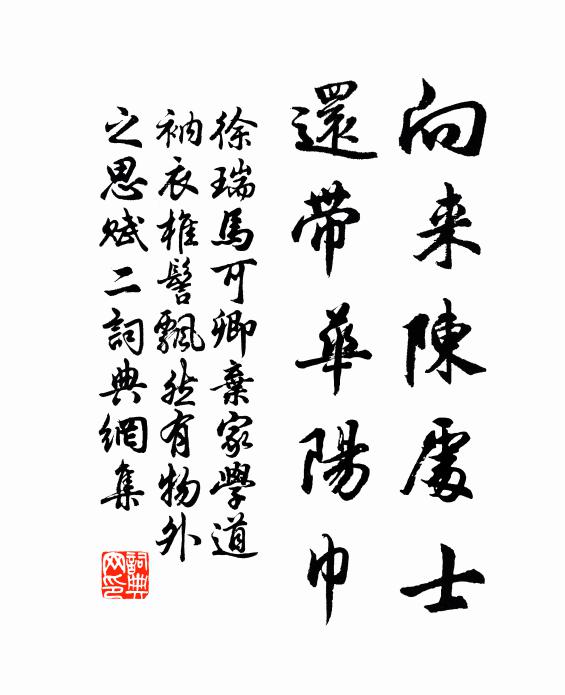 向来陳處士
還帶華陽巾
徐瑞馬可卿棄家學道
衲衣椎髻飄然有物外
之思賦二詞典網集
詞典網印